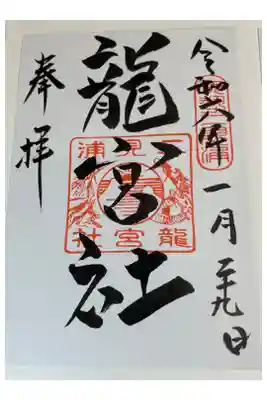 令和六年一月二十九日
龍宮社
二見浦
龍宮社
奉拝